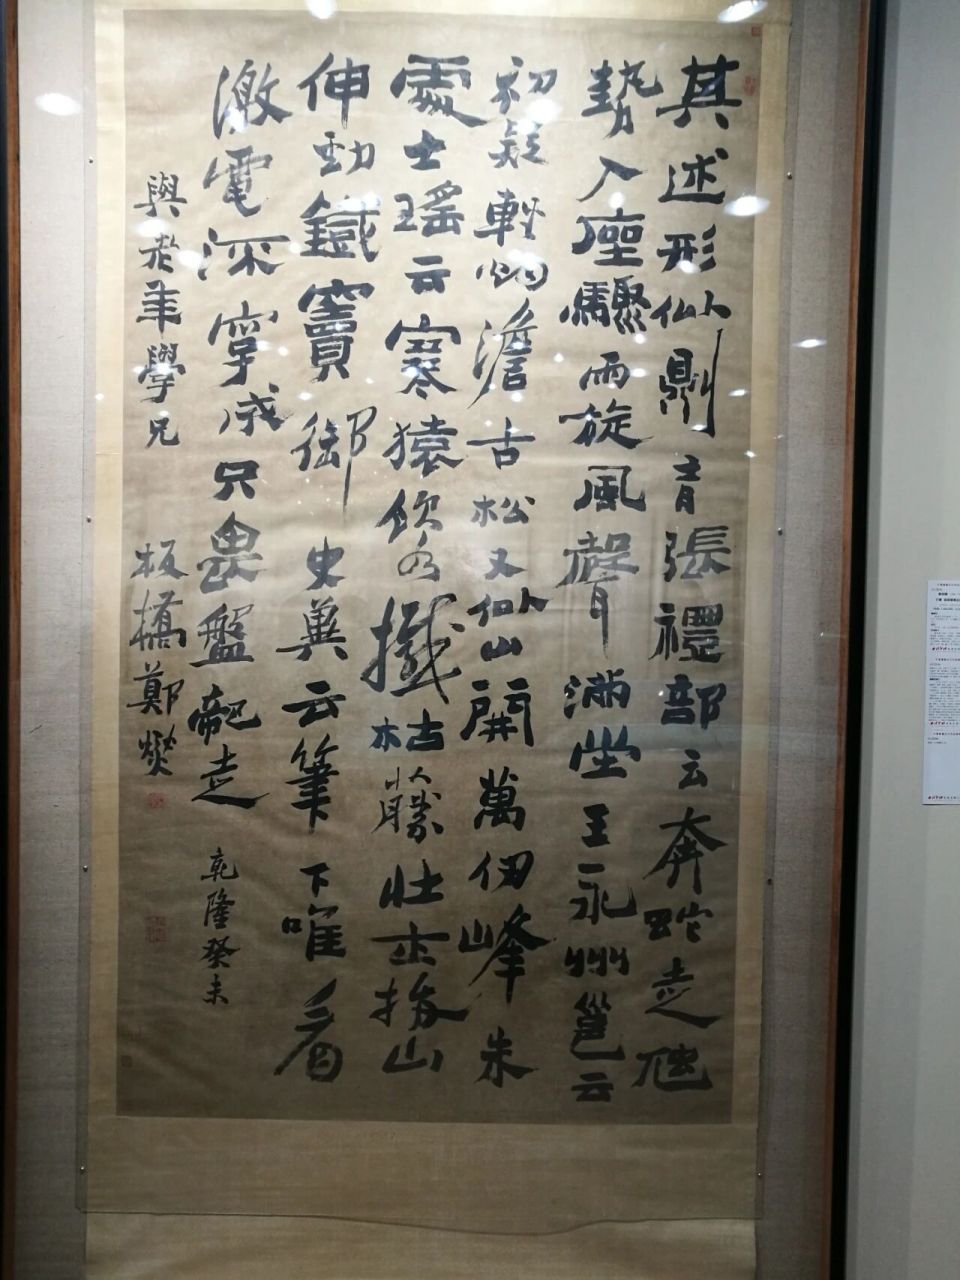 其述形似則有張禮部云奔蛇走虺
勢入座驟雨旋風聲滿堂王永州邕云
初疑輕烟澹古松又似山開萬仞峰朱
處士瑤云寒猿飲水撼枯藤壯士拔山
伸勁鐵竇御史冀云筆下唯看
激電流字成只畏盤龍走 乾隆癸未
與老年學兄 板橋鄭燮